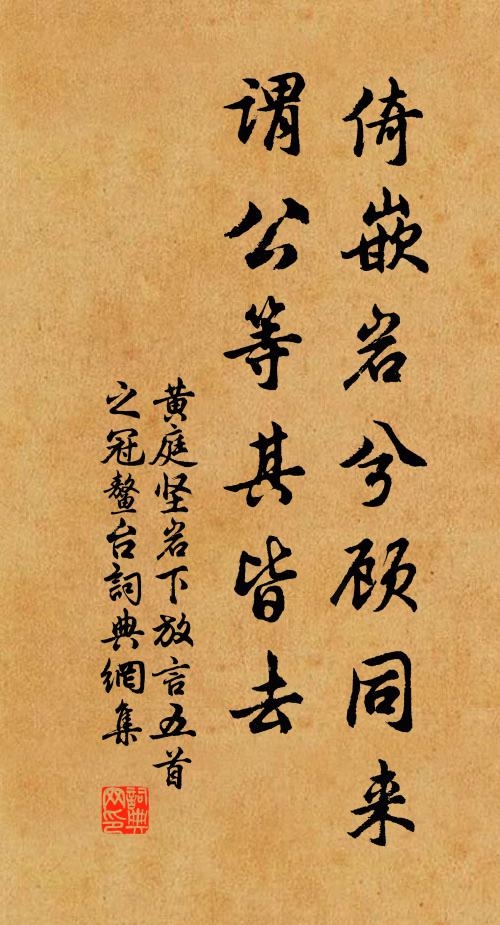 倚嵌岩兮顾同来
谓公等其皆去
黄庭坚岩下放言五首
之冠鳌台詞典網集
詞典網印